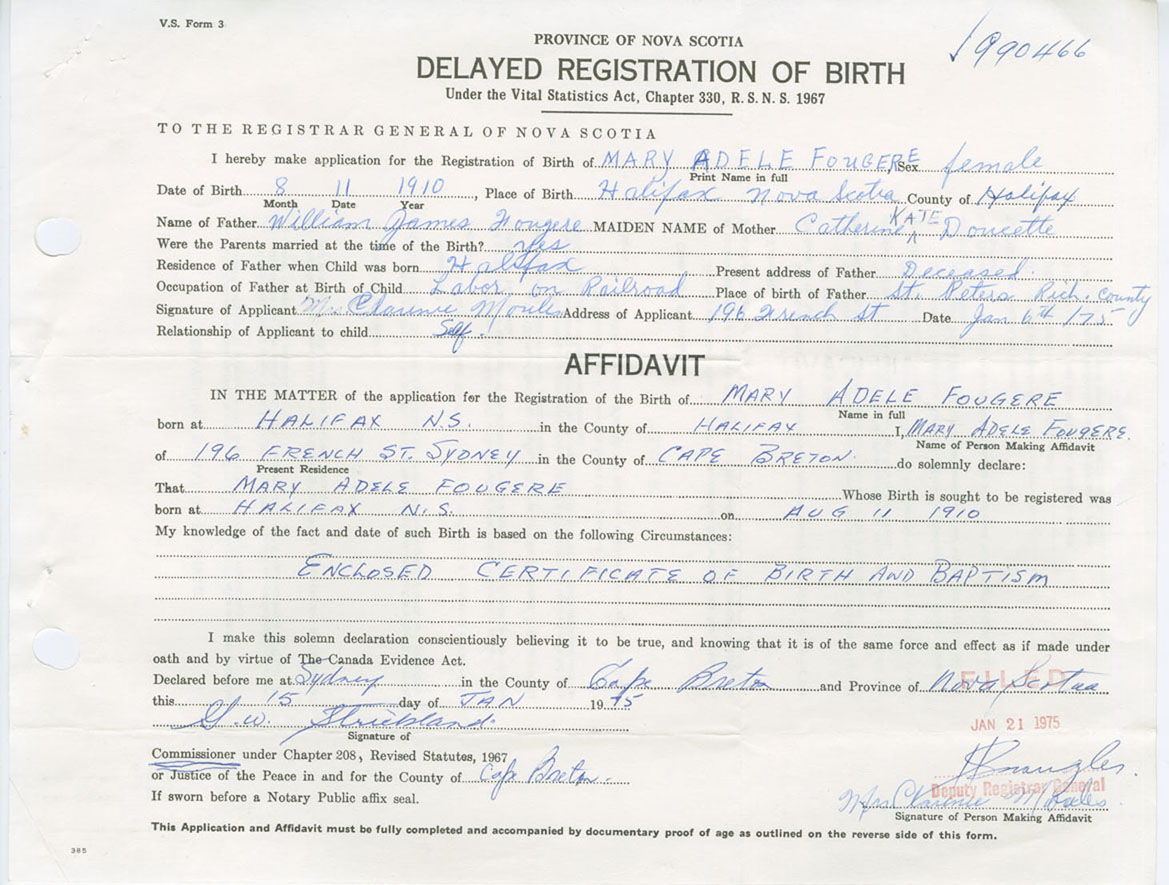 V.S. Form 3
PROVINCE OF NOVA SCOTIA
990466
DELAYED REGISTRATION OF BIRTH
Under the Vital Statistics Act, Chapter 330, R. S. N. S. 1967
TO THE REGISTRAR GENERAL OF NOVA SCOTIA
I hereby make application for the Registration of Birth of MARY ADELE FOUGERE, Sex female
Print Name in full
Date of Birth 8 11 1910, Place of Birth Halifax Nova Scotia County of Halifax
Month Date Year
Name of Father William James Fougere MAIDEN NAME of Mother Catherine KATE Doucette
Were the Parents married at the time of the Birth? Yes
Residence of Father when Child was born Halifax Present address of Father Deceased.
Occupation of Father at Birth of Child Labor on Railroad Place of birth of Father St. Peters Rich. County
Signature of Applicant Mrs Clarence Address of Applicant 196 French St Date Jan 6th/75
Relationship of Applicant to child Self.
AFFIDAVIT
IN THE MATTER of the application for the Registration of the Birth of MARY ADELE FOUGERE
Name in full
born at HALIFAX N.S. in the County of HALIFAX I, MARY ADELE FOUGERE.
Name of Person Making Affidavit
of 196 FRENCH ST. SYDNEY in the County of CAPE BRETON. do solemnly declare:
Present Residence
That MARY ADELE FOUGERE Whose Birth is sought to be registered was
born at HALIFAX N.S. on AUG 11 1910
My knowledge of the fact and date of such Birth is based on the following Circumstances:
ENCLOSED CERTIFICATE OF BIRTH AND BAPTISM
I make this solemn declaration conscientiously believing it to be true, and knowing that it is of the same force and effect as if made under
oath and by virtue of The Canada Evidence Act.
Declared before me at Sydney in the County of Cape Breton and Province of Nova Scotia
FILED
this 15 day of JAN 1975
JAN 21 1975
G. W. Strickland.
Signature of
Commissioner under Chapter 208, Revised Statutes, 1967
or Justice of the Peace in and for the County of Cape Breton.
Deputy Registrar General
If sworn before a Notary Public affix seal.
Mrs Clarence
Signature of Person Making Affidavit
This Application and Affidavit must be fully completed and accompanied by documentary proof of age as outlined on the reverse side of this form.
385